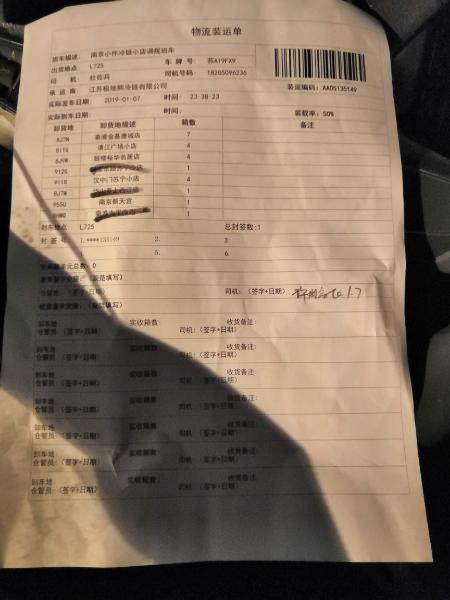 物流装运单
班车描述: 南京小件冷链小店调拨班车
出货地点: L725 车 牌 号: 苏A19FX9
司 机: 杜佐兵 司机号码 18205096236
承 运 商: 江苏极地熊冷链有限公司 装运编码:AA05135149
实际发车日期 2019-01-07 时间: 23 38 23
实际到车日期 时间: 装载率: 50%
卸货地 卸货地描述 箱数 备注
8J7N 7
8ITG 4
8J9W 鼓楼裕华名居店 4
912G 1
911R 汉中门苏宁小店 4
8J7W 1
955U 南京朝天宫 1
1
封车地点 L725 总封签数:1
封 签 号 1. ****135149 2. 3.
5. 6.
数: 0
(规范填写)
仓管员: (签字+日期) 司机: (签字+日期) 1.7
(规范填写)
卸车地 实收箱数: 收货备注:
仓管员: (签字+日期) 司机: (签字+日期)
卸车地 实收箱数 收货备注:
仓管员: (签字+日期) 司机: (签字+日期)
卸车地 实收箱数 收货备注:
仓管员: (签字+日期) 司机: (签字+日期)
卸车地 实收箱数 收货备注:
仓管员: (签字+日期) 司机: (签字+日期)
卸车地 实收箱数 收货备注:
仓管员: (签字+日期) 司机: (签字+日期)
卸车地 实收箱数 收货备注:
仓管员: (签字+日期) 司机: (签字+日期)